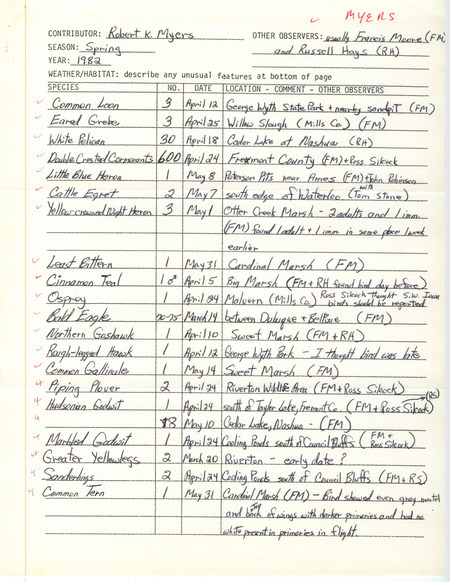 MYERS
CONTRIBUTOR: Robert K. Myers OTHER OBSERVERS: usually Francis Moore (FM)
SEASON: Spring and Russell Hays (RH)
YEAR: 1982
WEATHER/HABITAT: describe any unusual features at bottom of page
SPECIES NO. DATE LOCATION - COMMENT - OTHER OBSERVERS
Common Loon 3 April 12 George Wyth State Park & nearby sandpit (FM)
Eared Grebe 3 April 25 Willow Slough (Mills Co.) (FM)
White Pelican 30 April 18 Cedar Lake at Nashua (RH)
Double Crested Cormorants 600 April 24 Fremont County (FM) + Ross Silcock
Little Blue Heron 1 May 8 Peterson Pits near Ames (FM) + John Robinson
Cattle Egret 2 May 7 south edge of Waterloo (with Tom Stone)
Yellow crowned Night Heron 3 May 1 Otter Creek Marsh - 2 adults and 1 imm.
(FM) found 1 adult + 1 imm in same place 1 week
earlier
Least Bittern 1 May 31 Cardinal Marsh (FM)
Cinnamon Teal 1♂ April 5 Big Marsh (FM + RH found bird day before)
Osprey 1 April 24 Malvern (Mills Co.) Ross Silcock thought S.W. Iowa birds should be reported
Bald Eagle 70-75 March 14 between Dubuque & Bellevue (FM)
Northern Goshawk 1 April 10 Sweet Marsh (FM + RH)
Rough-legged Hawk 1 April 12 George Wyth Park - I thought bird was late
Common Gallinule 1 May 14 Sweet Marsh (FM)
Piping Plover 2 April 24 Riverton Wildlife Area (FM + Ross Silcock)
Hudsonian Godwit 1 April 24 south of Taylor Lake, Fremont Co. (FM + Ross Silcock) (RS)
18 May 10 Cedar Lake, Nashua - (FM)
Marbled Godwit 1 April 24 Cooling Ponds south of Council Bluffs (FM + Ross Silcock)
Greater Yellowlegs 2 March 20 Riverton - early date?
Sanderlings 2 April 24 Cooling Ponds south of Council Bluffs (FM + RS)
Common Tern 1 May 31 Cardinal Marsh (FM) - Bird showed even gray mantel
and top of wings with darker primeries and had no
white present in primeries in flight.